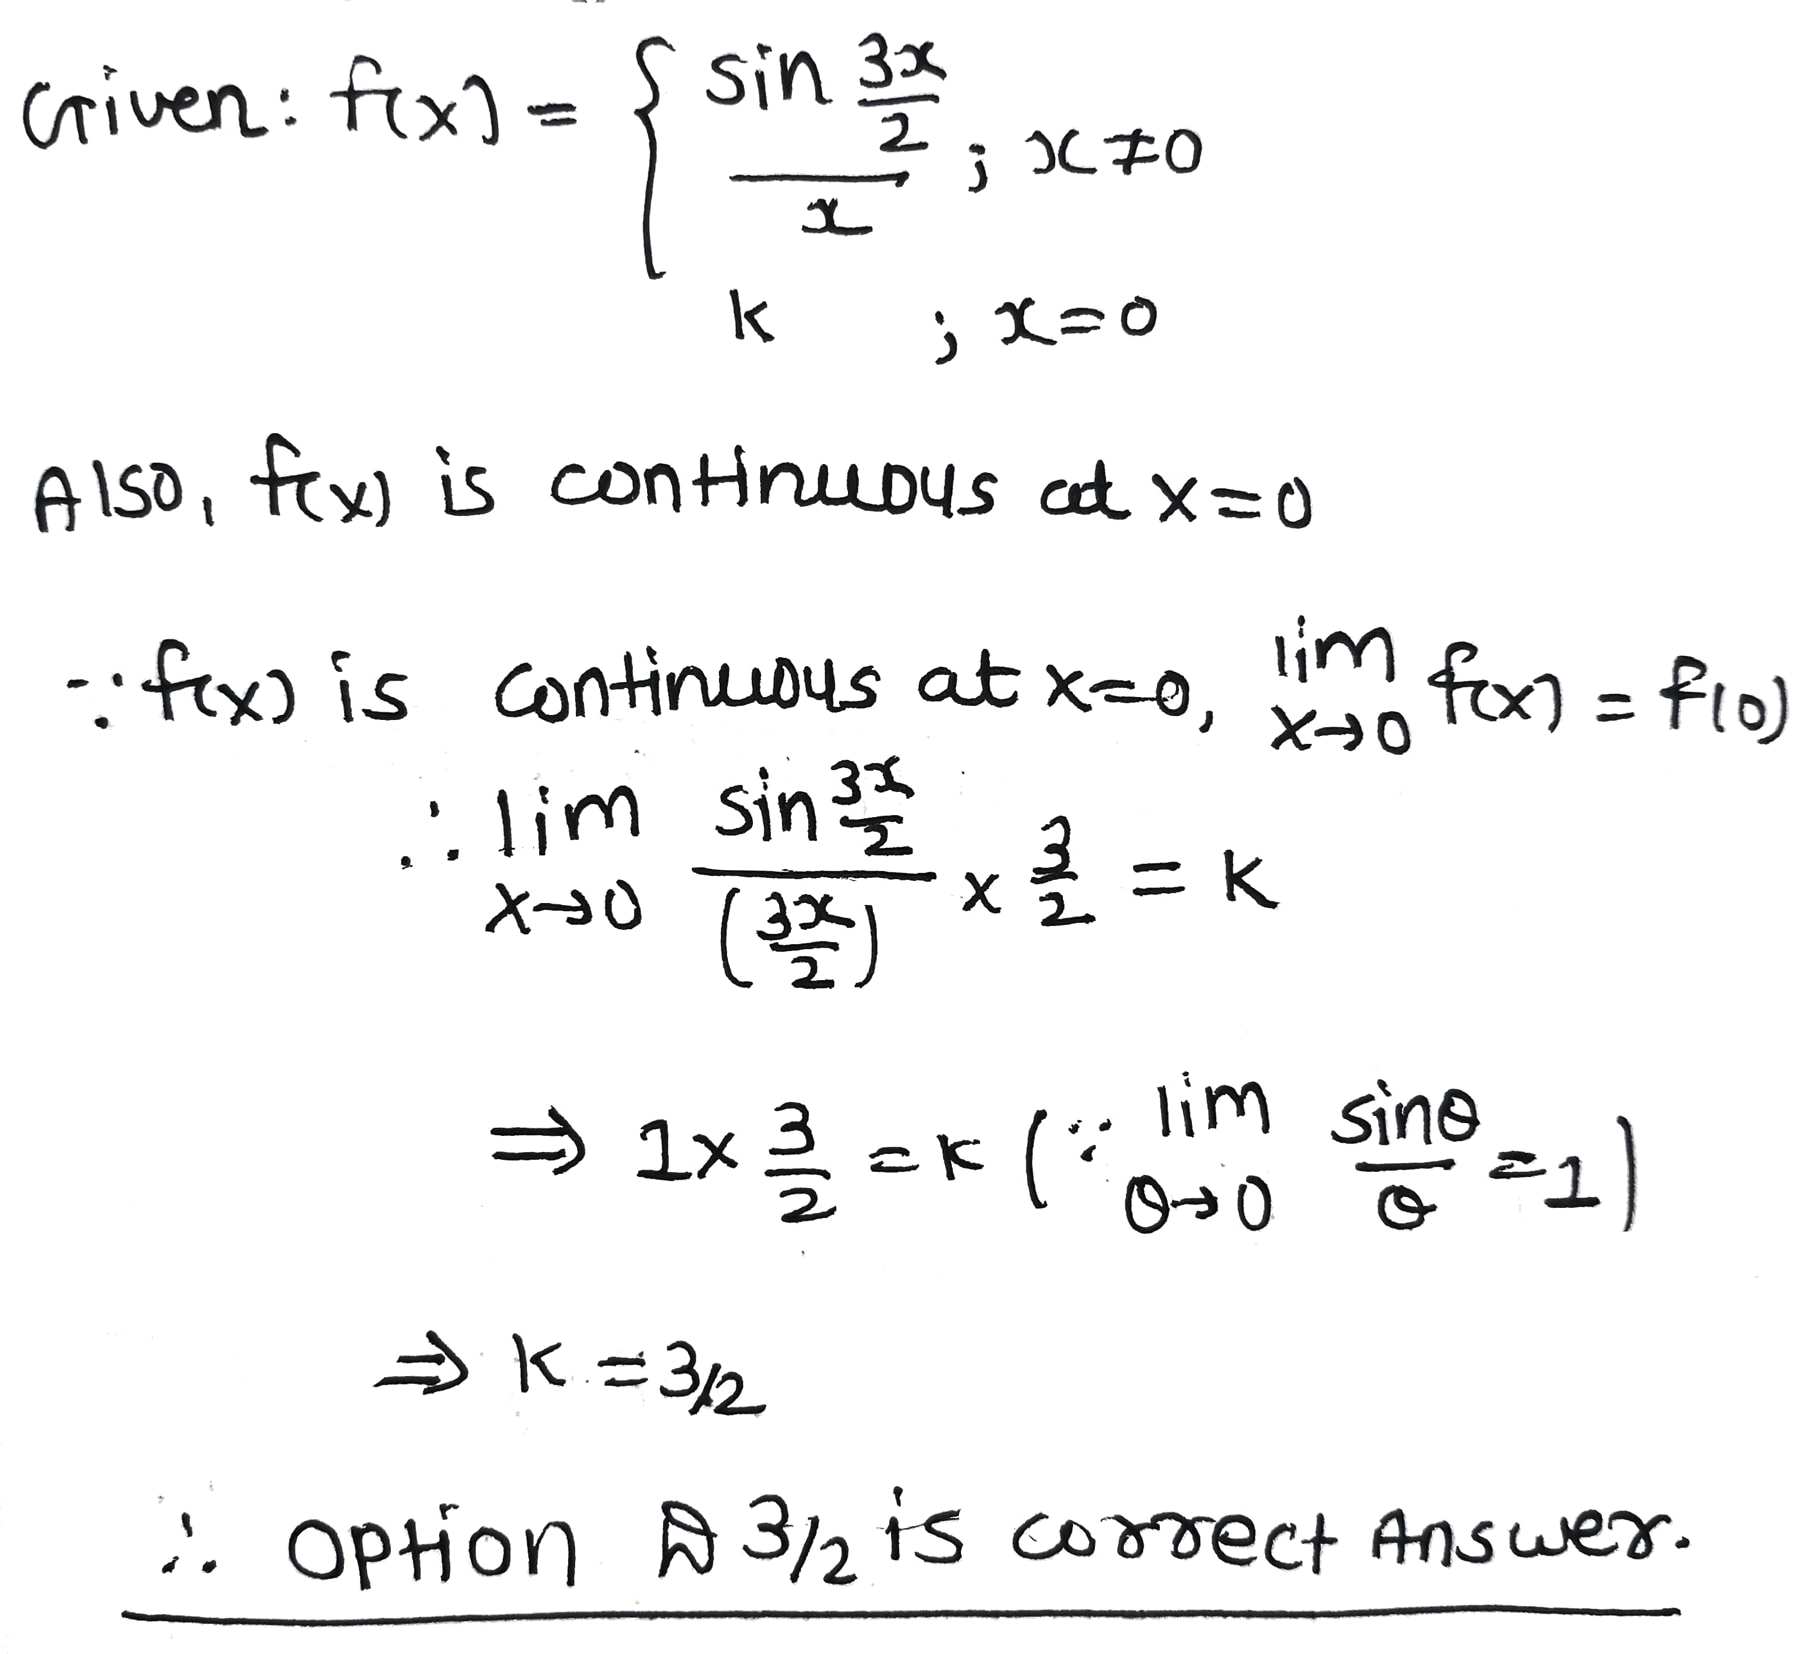 Given: f(x) = { sin 3x/2 / x ; x≠0
k ; x=0
Also, f(x) is continuous at x=0
∵ f(x) is continuous at x=0, lim x→0 f(x) = f(0)
∴ lim x→0 sin 3x/2 / (3x/2) × 3/2 = k
⇒ 1 × 3/2 = k (∵ lim θ→0 sinθ/θ = 1)
⇒ k = 3/2
∴ Option 3/2 is correct Answer.